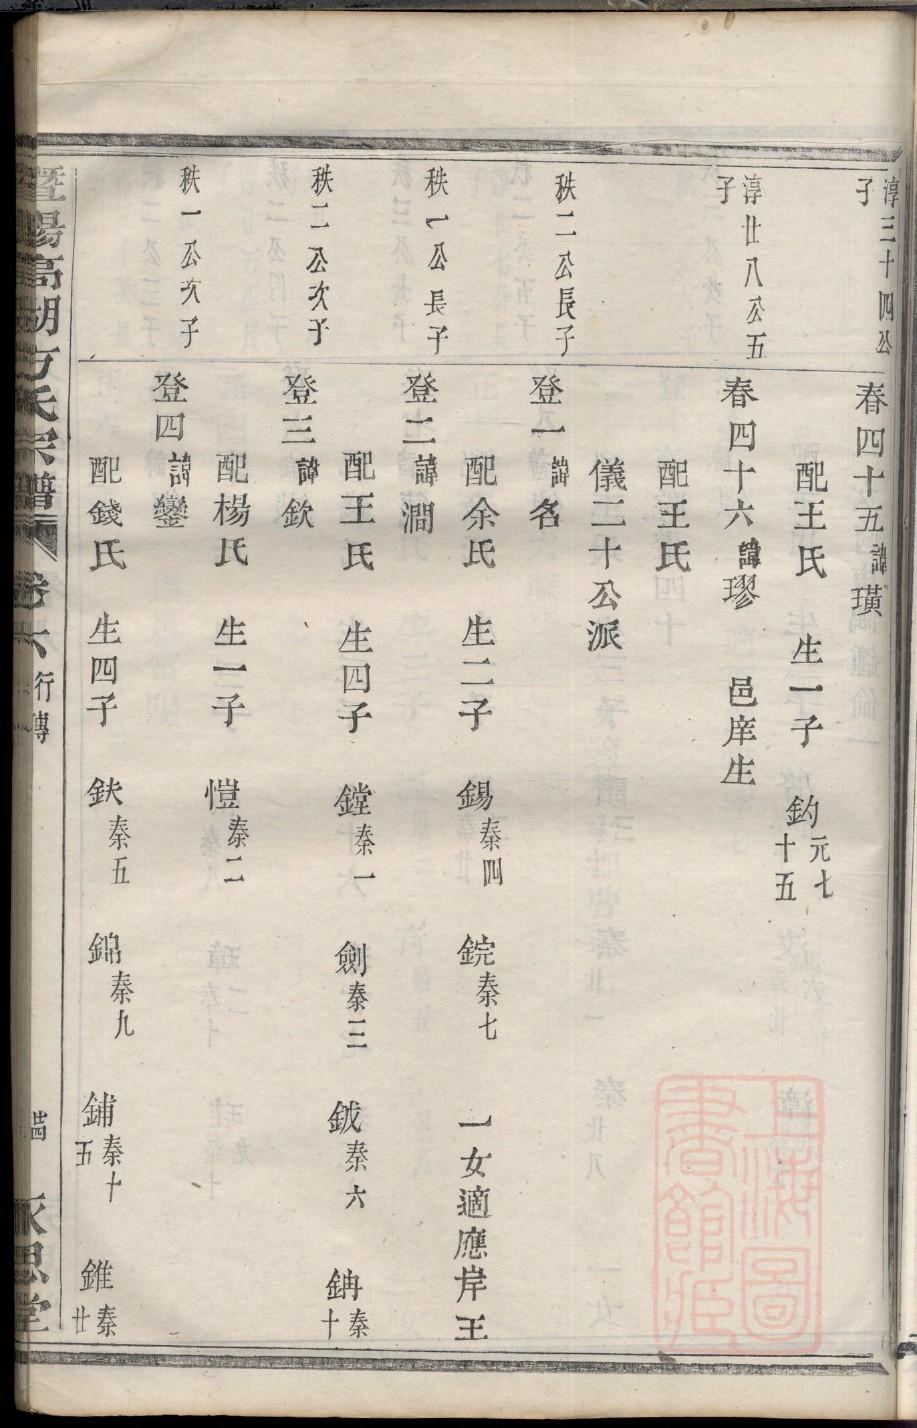 淳三十四公子
春四十五諱璜
配王氏 生一子 鈞元七十五
淳廿八公五子
春四十六諱璆 邑庠生
配王氏
儀二十公派
秩二公長子
登一諱名
配余氏 生二子 錫秦四 鋎秦七 一女適應岸王
秩一公長子
登二諱澗
配王氏 生四子 鏜秦一 劍秦三 鉞秦六 秦十
秩二公次子
登三諱欽
配楊氏 生一子 愷秦二
秩一公次子
登四諱鑾
配錢氏 生四子 鈌秦五 錦秦九 鋪秦十五 錐秦廿
暨陽高湖方氏宗譜 卷六 行傳 永思堂
上海圖書館藏